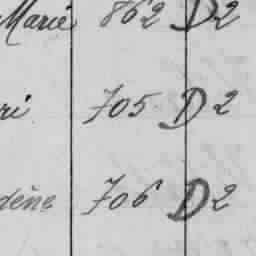 Marie 862 D2
ri 705 D2
dène 706 D2